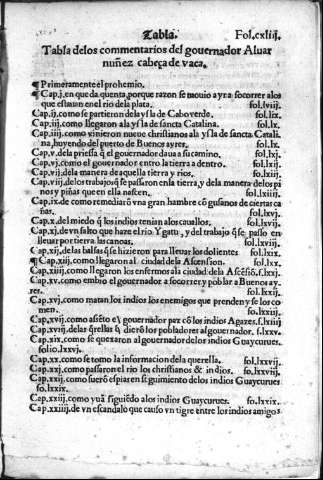 Tabla. Fol.cxliij.
Tabla delos commentarios del gouernador Aluar
nuñez cabeça de vaca.
¶ Primeramente el prohemio.
Cap.j, en que da quenta, porque razon se mouio a yr a socorrer alos
que estauan en el rio dela plata. fol.lviij.
Cap.ij, como se partieron dela ysla de Caboverde. fol.lix.
Cap.iij, como llegaron ala ysla de sancta Catalina. fol.lx.
Cap.iiij, como vinieron nueue christianos ala ysla de sancta Catali
na, huyendo del puerto de Buenos ayres. fo.lx.
Cap.v, dela priessa q̃ el gouernador daua a su camino. fo.lxj.
Cap.vj, como el gouernador entro la tierra a dentro. fol.lxij.
Cap.vij, dela manera de aquella tierra y rios. fo.lxiij.
Cap.viij, delos trabajos q̃ se passaron enla tierra, y dela manera delos pi
nos y piñas que en ella nascen. fo.lxiiij.
Cap.ix, de como remediarõ vna gran hambre cõ gusanos de ciertas ca
ñas. fo.lxvj.
Cap.x, del miedo q̃ los indios tenian alos cauallos. fo.lxvij.
Cap.xj, de vn salto que haze el rio Ygatu, y del trabajo q̃ se passo en
lleuar por tierra, las canoas. fo.lxviij.
Cap.xij, delas balsas q̃ se hizieron para lleuar los dolientes fol.lxix.
¶ Cap.xiij, como llegaron al ciudad dela Ascension. fol.lxx.
Cap.xiiij, como llegaron los enfermos ala ciudad dela Ascẽsiõ. f.lxxj.
Cap.xv, como embio el gouernador a socorrer, y poblar a Buenos ay
res. fo.lxxij.
Cap.xvj, como matan los indios los enemigos que prenden y se los co
men. fo.lxxiij.
Cap.xvij, como asẽto el gouernador paz cõ los indios Agazes. f.lxxiiij
Cap.xviij, delas q̃rellas q̃ dierõ los pobladores al gouernador. f.lxxv.
Cap.xix, como se quexaron al gouernador delos indios Guaycurues.
folio.lxxvj.
Cap.xx, como se tomo la informacion dela querella. fo.lxxvij.
Cap.xxj, como passaron el rio los christianos & indios. fo.lxxviij.
Cap.xxij, como fuerõ espias en seguimiento delos indios Guaycurues
fo.lxxix.
Cap.xxiij, como yuã siguiẽdo alos indios Guaycurues. fo.lxxix.
Cap.xxiiij, de vn escandalo que causo vn tigre entre los indios amigos